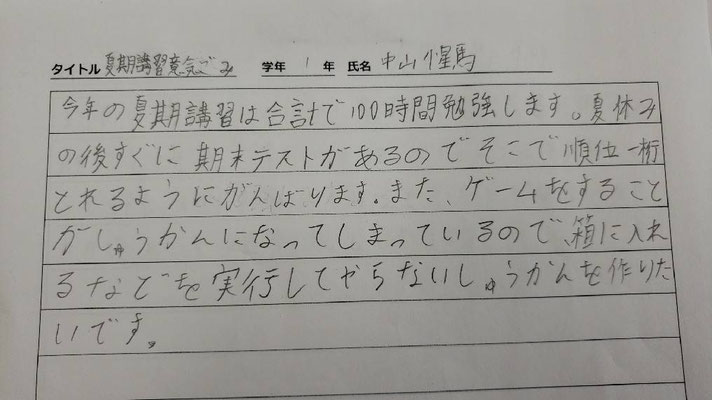 タイトル 夏期講習意気ごみ 学年 1 年 氏名 中山惺馬
今年の夏期講習は合計で100時間勉強します。夏休み
の後すぐに期末テストがあるのでそこで順位一桁
とれるようにがんばります。また、ゲームをすること
がしゅうかんになってしまっているので、箱に入れ
るなどを実行してやらないしゅうかんを作りた
いです。